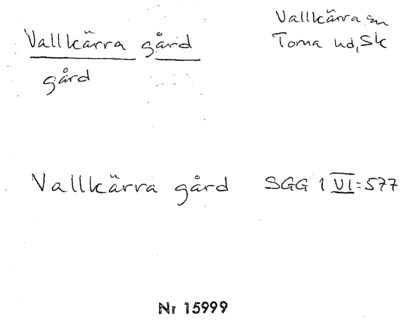 Vallkärra gård
gård
Vallkärra sn
Torna hd, Sk
Vallkärra gård SGG 1 VI:577
Nr 15999